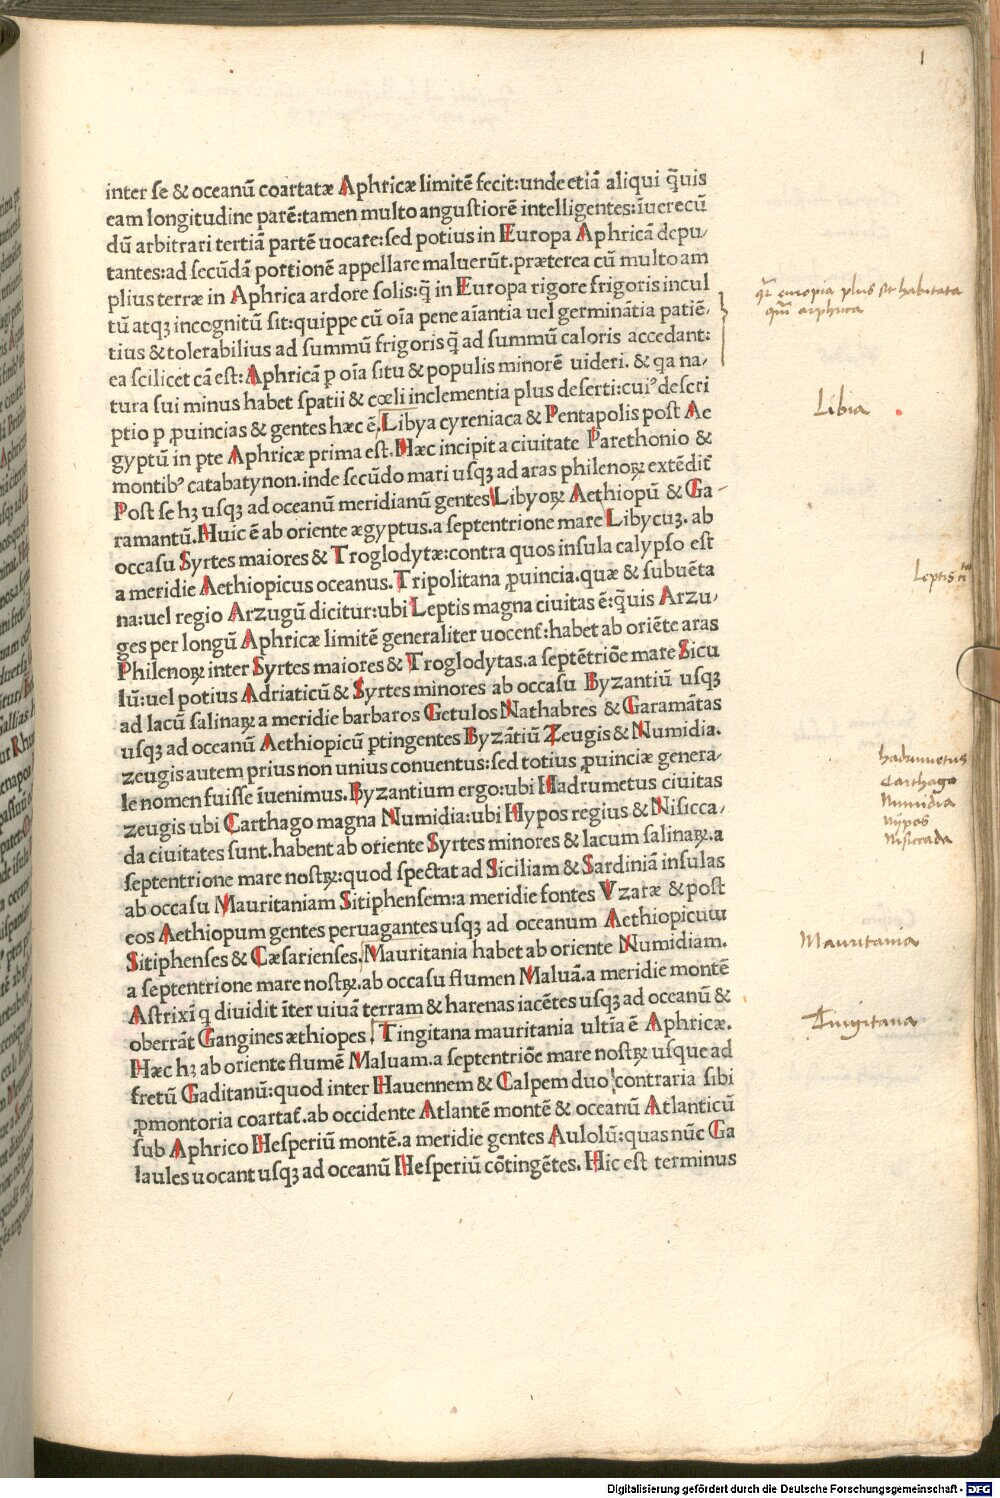 1
inter se & oceanũ coartatæ Aphricæ limitẽ fecit:unde etiã aliqui q̃uis
eam longitudine parẽ:tamen multo angustiorẽ intelligentes:ĩuerecũ
dũ arbitrari tertiã partẽ uocare:sed potius in Europa Aphricã depu/
tantes:ad secũdã portionẽ appellare maluerũt.præterea cũ multo am
plius terræ in Aphrica ardore solis:q̃ in Europa rigore frigoris incul
tũ atqꝫ incognitũ sit:quippe cũ oĩa pene aĩantia uel germinãtia patiẽ/
tius & tolerabilius ad summũ frigoris q̃ ad summũ caloris accedant:
ea scilicet cã est:Aphricã ꝑ oĩa situ & populis minorẽ uideri. & qa na/
tura sui minus habet spatii & cœli inclementia plus deserti:cuiꝰ descri
ptio ꝑ ꝓuincias & gentes hæc ẽ. Libya cyreniaca & Pentapolis post Ae
gyptũ in pte Aphricæ prima est. Hæc incipit a ciuitate Parethonio &
montibꝰ catabatynon.inde secũdo mari usqꝫ ad aras philenoꝝ extẽdit̃
Post se hꝫ usqꝫ ad oceanũ meridianũ gentes Libyoꝝ Aethiopũ & Ga-
ramantũ. Huic ẽ ab oriente ægyptus.a septentrione mare Libycuꝫ. ab
occasu Syrtes maiores & Troglodytæ:contra quos insula calypso est
a meridie Aethiopicus oceanus. Tripolitana ꝓuincia.quæ & subuẽta
na:uel regio Arzugũ dicitur:ubi Leptis magna ciuitas ẽ:q̃uis Arzu/
ges per longũ Aphricæ limitẽ generaliter uocent̃:habet ab oriẽte aras
Philenoꝝ inter Syrtes maiores & Troglodytas.a septẽtriõe mare Sicu
lũ:uel potius Adriaticũ & Syrtes minores ab occasu Byzantiũ usqꝫ
ad lacũ salinaꝝ a meridie barbaros Getulos Nathabres & Garamãtas
usqꝫ ad oceanũ Aethiopicũ ꝑtingentes Byzãtiũ Zeugis & Numidia.
zeugis autem prius non unius conuentus:sed totius ꝓuinciæ genera/
le nomen fuisse ĩuenimus. Byzantium ergo:ubi Hadrumetus ciuitas
zeugis ubi Carthago magna Numidia:ubi Hypos regius & Nisicca/
da ciuitates sunt.habent ab oriente Syrtes minores & lacum salinaꝝ.a
septentrione mare nostꝝ:quod spectat ad Siciliam & Sardiniã insulas
ab occasu Mauritaniam Sitiphensem:a meridie fontes Vzaræ & post
eos Aethiopum gentes peruagantes usqꝫ ad oceanum Aethiopicum
Sitiphenses & Cæsarienses. Mauritania habet ab oriente Numidiam.
a septentrione mare nostꝝ.ab occasu flumen Maluã.a meridie montẽ
Astrixĩ q diuidit ĩter uiuã terram & harenas iacẽtes usqꝫ ad oceanũ &
oberrãt Gangines æthiopes. Tingitana mauritania ultĩa ẽ Aphricæ.
Hæc hꝫ ab oriente flumẽ Maluam.a septentriõe mare nostꝝ usque ad
fretũ Gaditanũ:quod inter Hauennem & Calpem duo contraria sibi
ꝓmontoria coartat̃.ab occidente Atlantẽ montẽ & oceanũ Atlanticũ
sub Aphrico Hesperiũ montẽ.a meridie gentes Aulolũ:quas nũc Ga
laules uocant usqꝫ ad oceanũ Hesperiũ cõtingẽtes. Hic est terminus
europia plus sit habitata
aphrica
Libia
Leptis
hadrumetus
Carthago
Numidia
nypos
Nisiccada
Mauritania
Tingitana
Digitalisierung gefördert durch die Deutsche Forschungsgemeinschaft - DFG